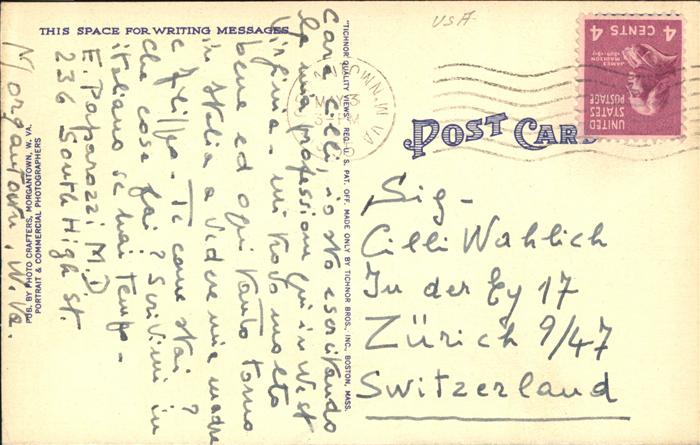 USA
THIS SPACE FOR WRITING MESSAGES
POST CARD
4 CENTS 4
JAMES MADISON
UNITED STATES POSTAGE
W. VA
MAY 3
PM
Cara Cilli, io sto esercitando
la mia professione qui in West
Virginia - mi trovo molto
bene ed ogni tanto torno
in Italia a vedere mia madre
e Filippo - Tu come stai?
Che cosa fai? Scrivimi in
italiano se hai tempo -
E. Paparozzi M.D.
236 South High St.
Morgantown, W. Va.
Sig-
Cilli Wahlich
In der Ey 17
Zürich 9/47
Switzerland
"TICHNOR QUALITY VIEWS" REG. U. S. PAT. OFF. MADE ONLY BY TICHNOR BROS., INC., BOSTON, MASS.
PUB. BY PHOTO CRAFTERS, MORGANTOWN, W. VA.
PORTRAIT & COMMERCIAL PHOTOGRAPHERS